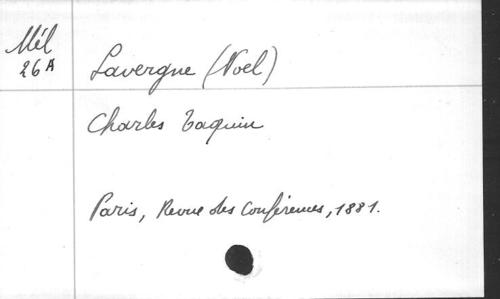 Mél
26A
Lavergne (Noel)
Charles Taquin
Paris, Revue des Conférences, 1881.